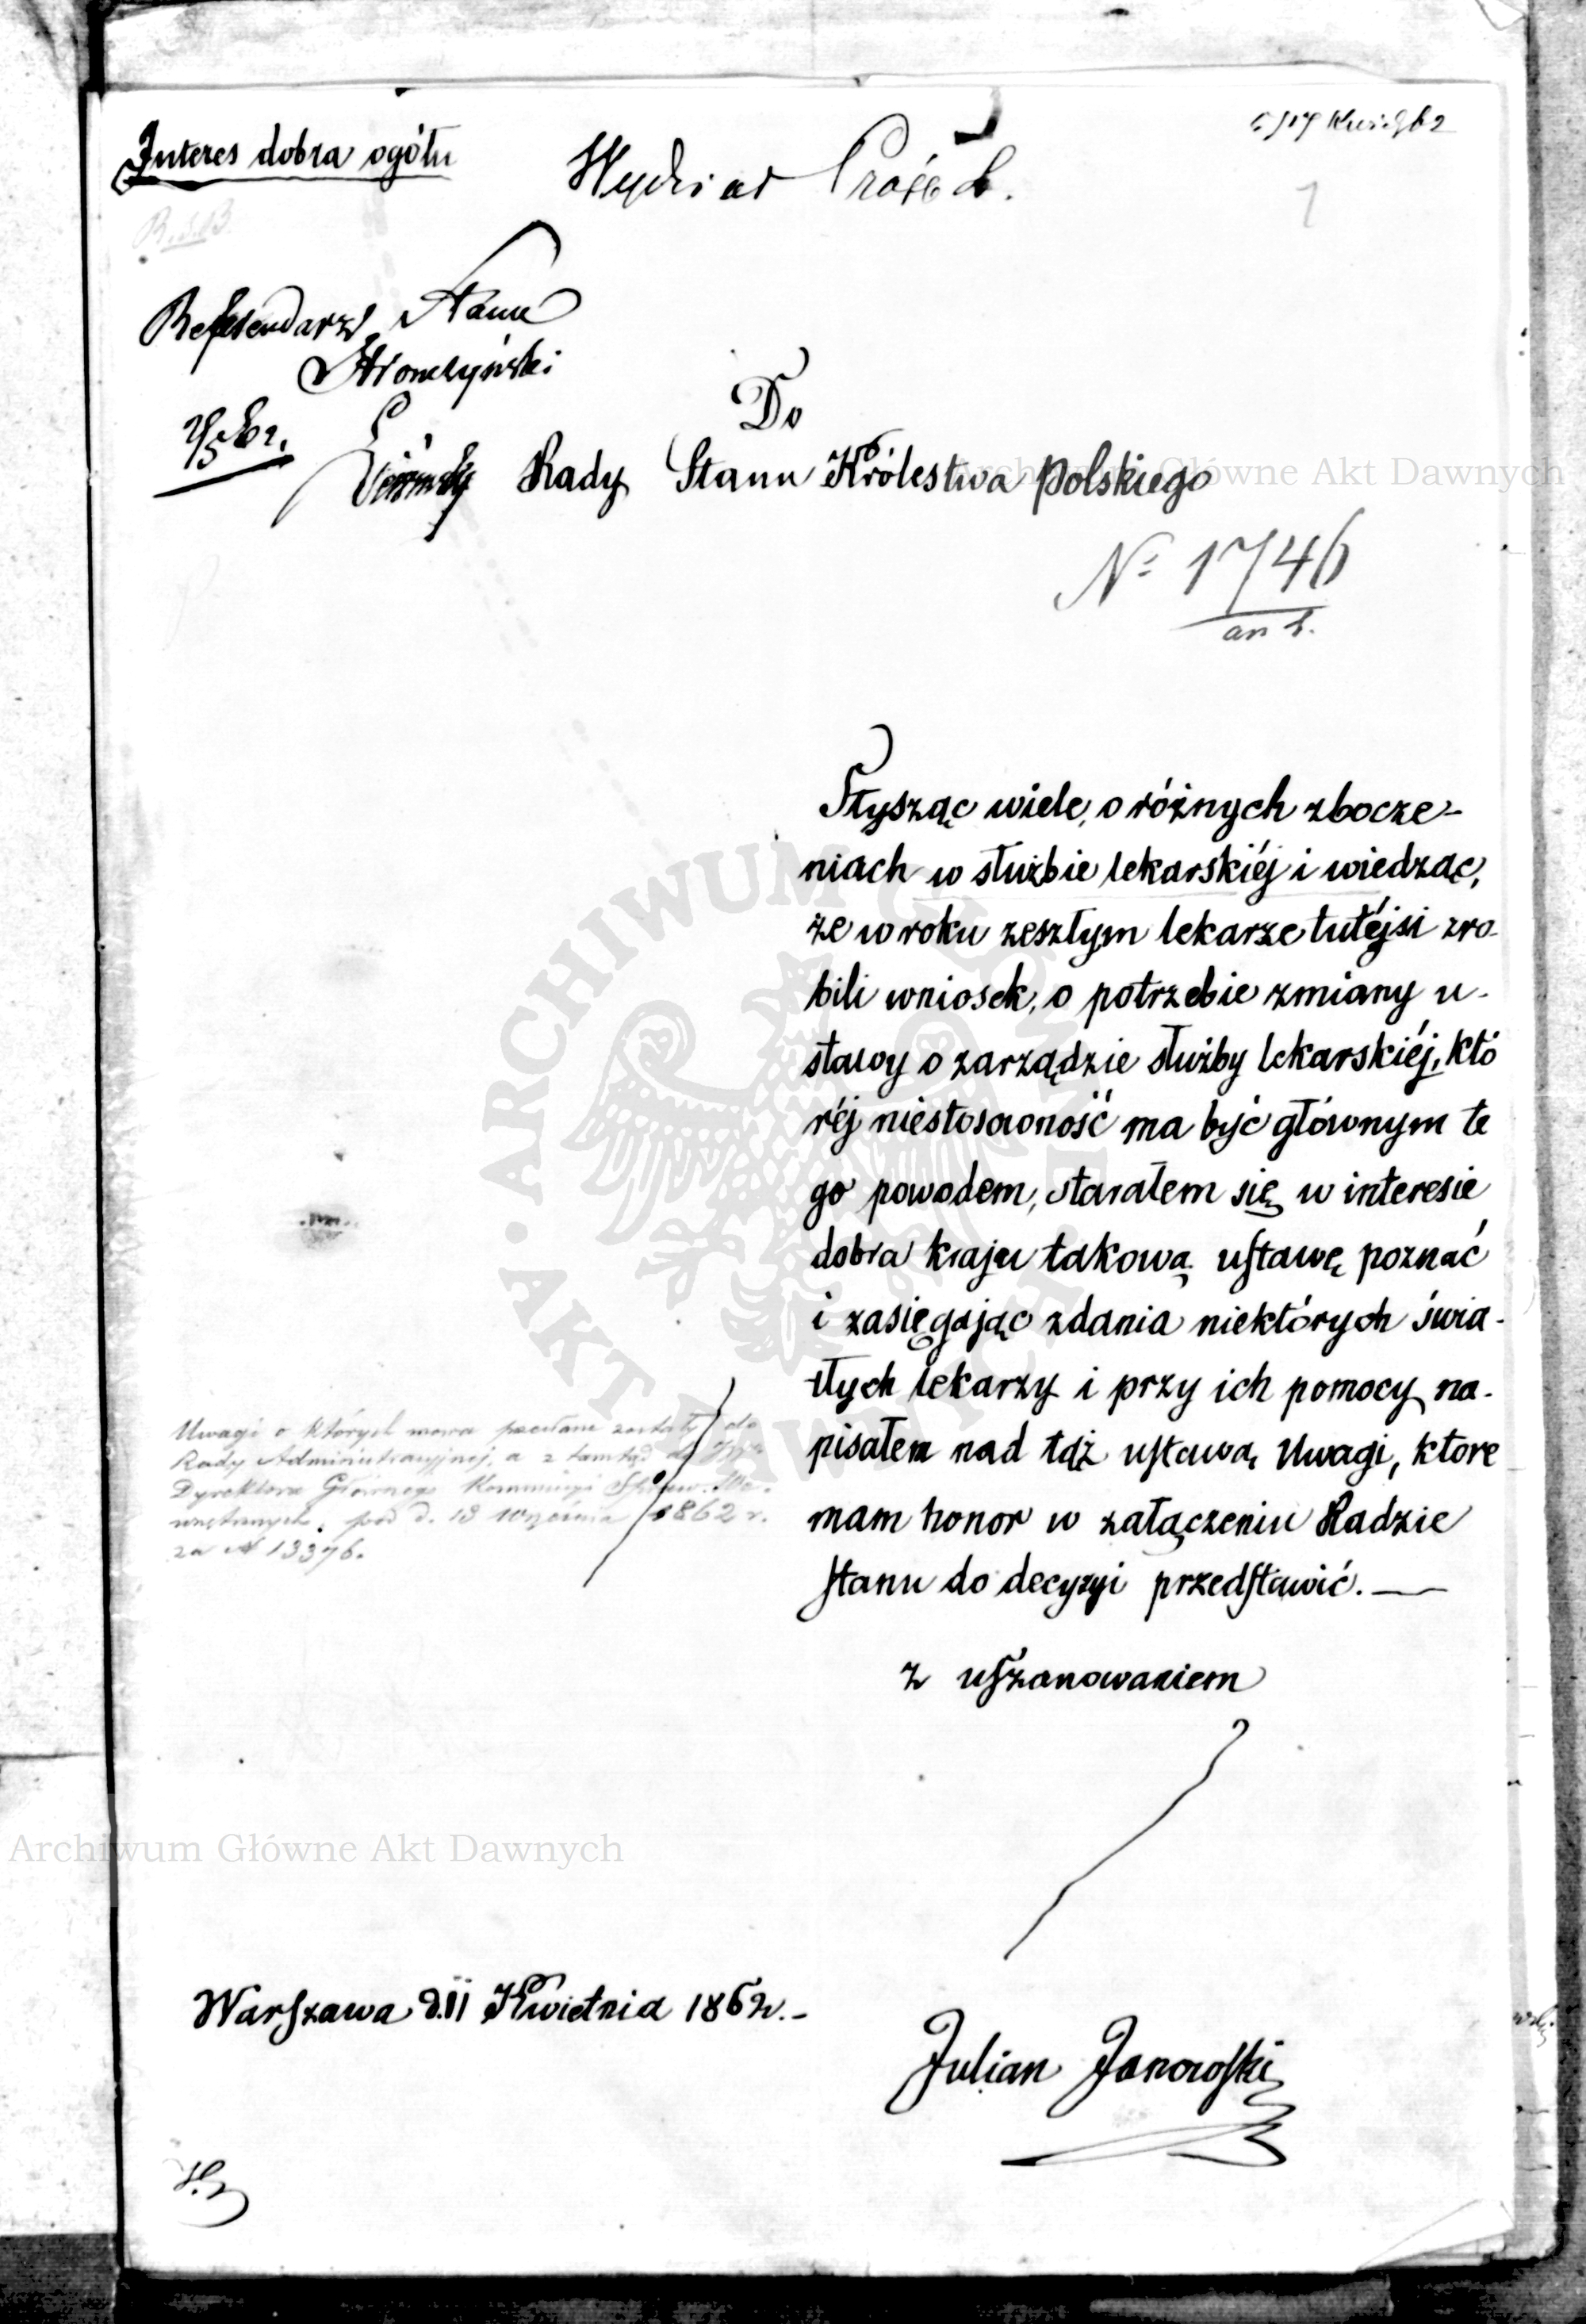 Interes dobra ogółu
Wydział Próśb.
1
R.S.B.
Referendarz Stanu
Stronczyński
Do
Rady Stanu Królestwa Polskiego
Archiwum Główne Akt Dawnych
№ 1746
Słysząc wiele, o różnych zbocze-
niach w służbie lekarskiéj i wiedząc,
że w roku zeszłym lekarze tutéjsi zro-
bili wniosek, o potrzebie zmiany u-
stawy o zarządzie służby lekarskiéj, któ
réj niestosowność ma być głównym te
go powodem, starałem się w interesie
dobra kraju takową ustawę poznać
i zasięgając zdania niektórych świa-
tłych lekarzy i przy ich pomocy na-
pisałem nad tąż ustawą Uwagi, które
mam honor w załączeniu Radzie
Stanu do decyzyi przedstawić. —
Uwagi o których mowa posłane zostały do
Rady Administracyjnej, a z tamtąd do
Dyrektora Głównego Kommissyi Spraw. We-
wnętrznych, pod d. 18 Września 1862 r.
za № 13376.
z uszanowaniem
Archiwum Główne Akt Dawnych
Warszawa d. 11 Kwietnia 1862 r.-
Julian Janowski
ARCHIWUM GŁÓWNE AKT DAWNYCH